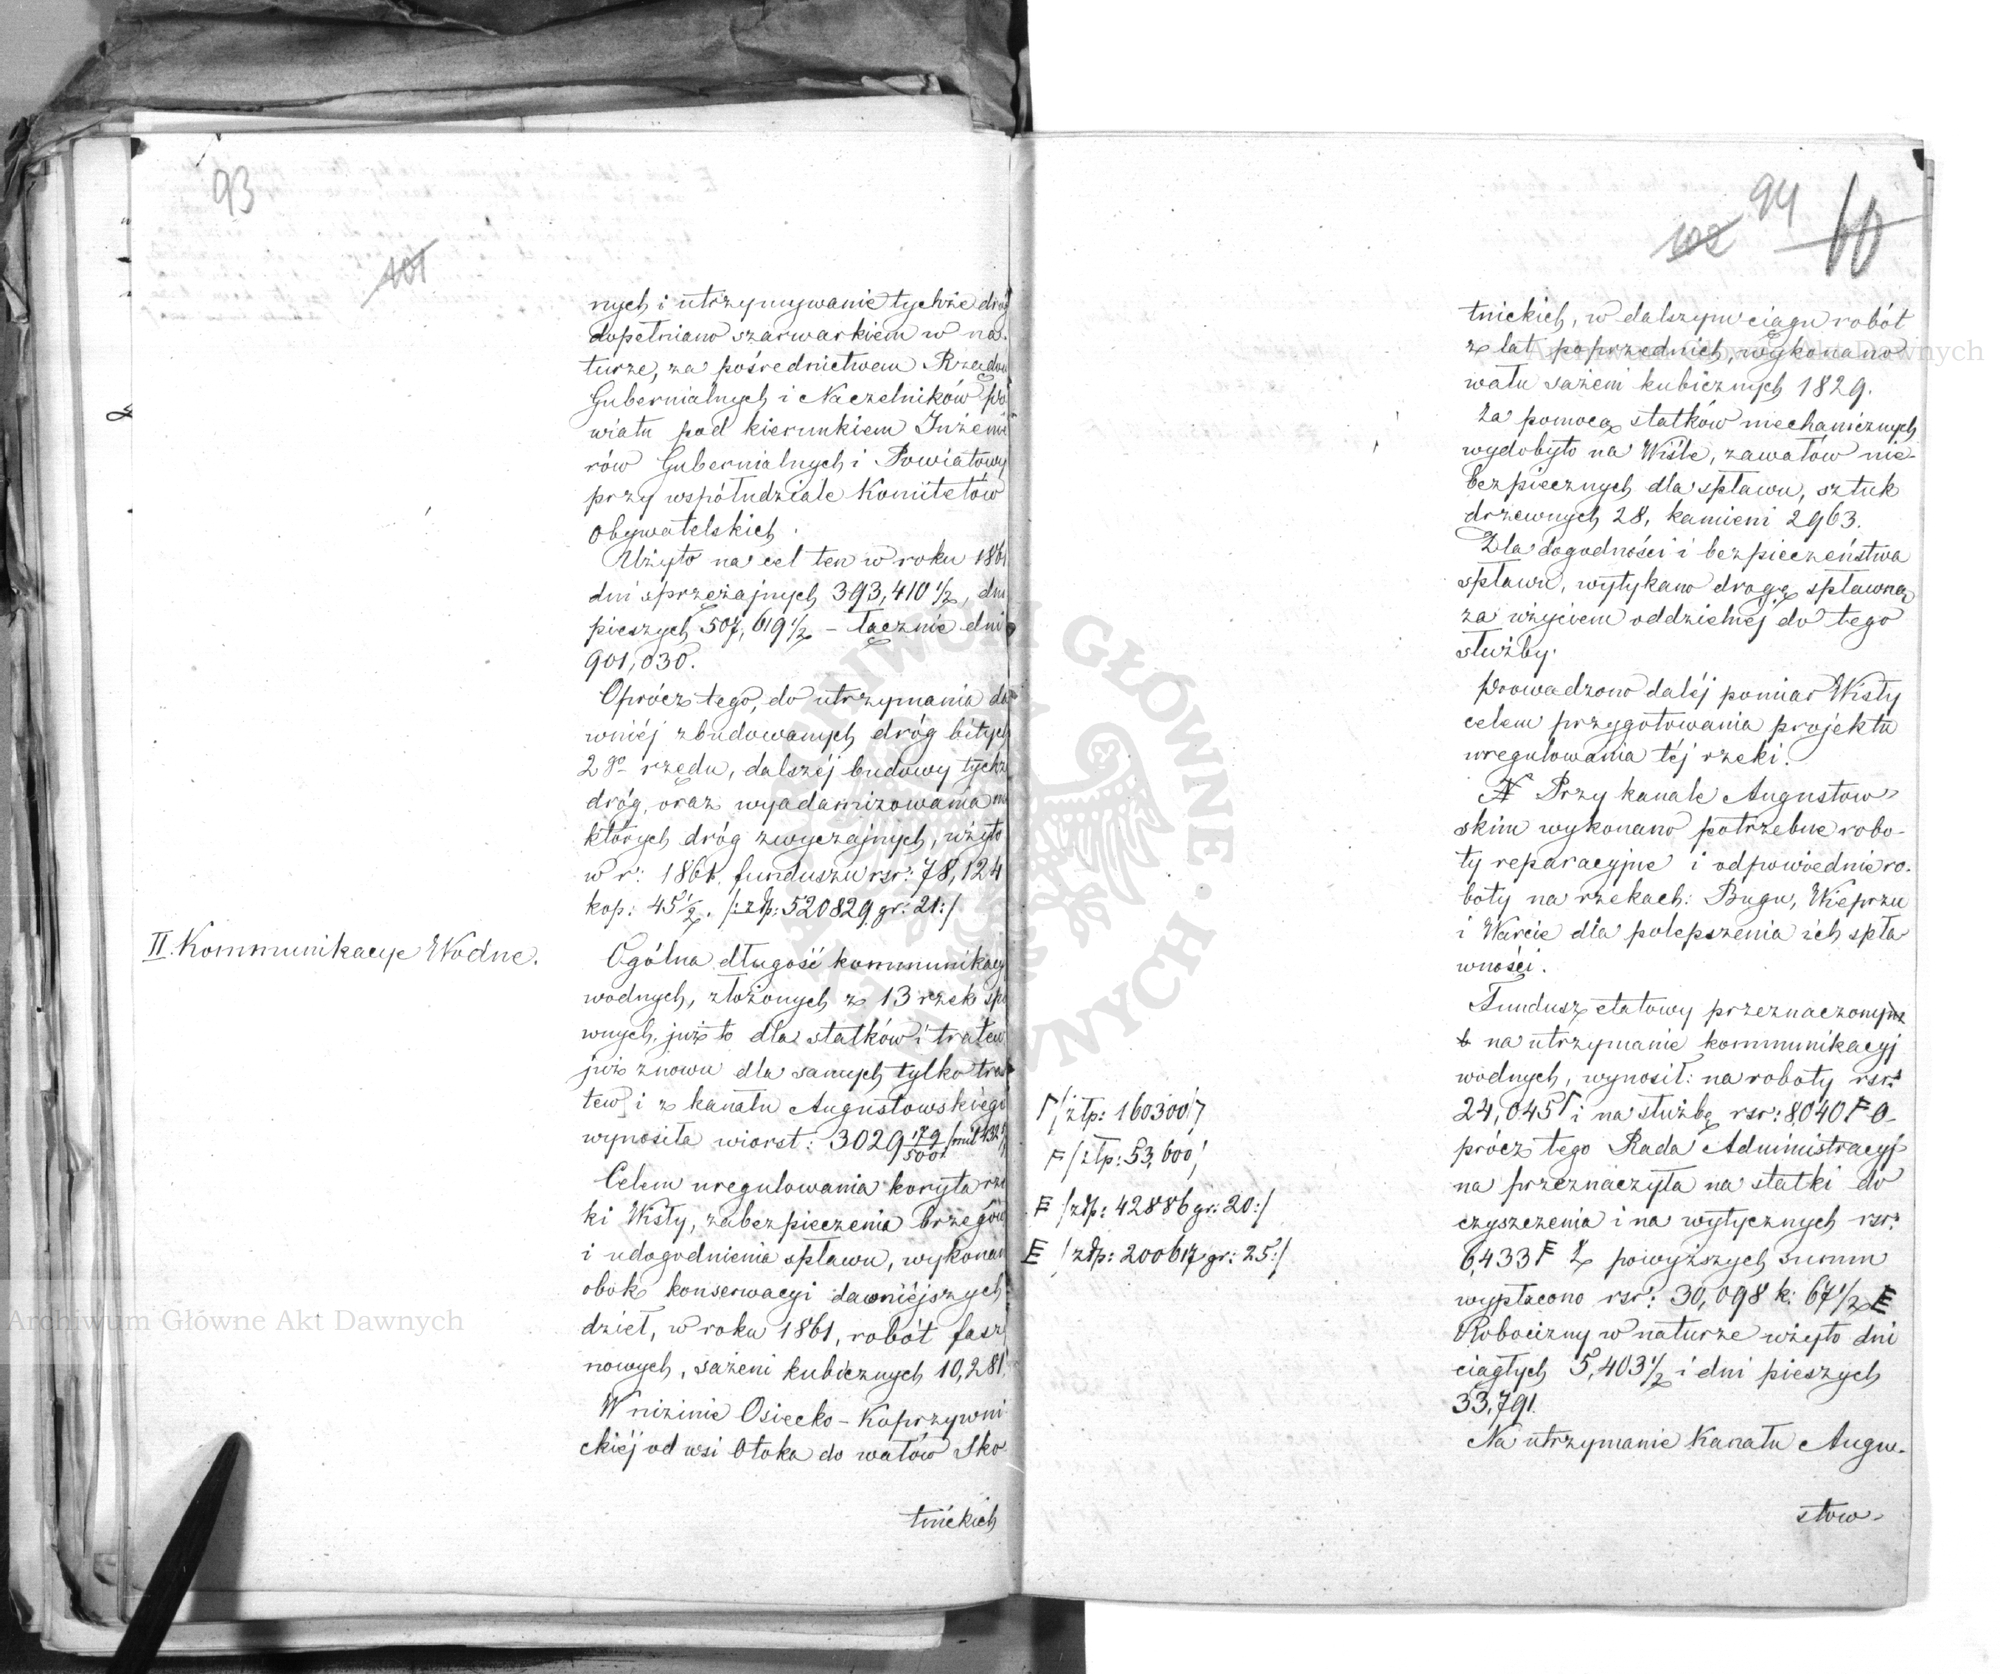 93
101
nych i utrzymywanie tychże dróg
dopełniano szarwarkiem w na-
turze, za pośrednictwem Rządów
Gubernialnych i Naczelników Po
wiatu pod kierunkiem Inżenie
rów Gubernialnych i Powiatowy
przy współudziale Komitetów
Obywatelskich.
Użyto na cel ten w roku 1861
dni sprzężajnych 393,410 1/2, dni
pieszych 507,619 1/2 – łącznie dni
901,030.
Oprócz tego, do utrzymania da
wniéj zbudowanych dróg bitych
2go rzędu, dalszéj budowy tychż
dróg, oraz wyadamizowania nie
których dróg zwyczajnych, użyto
w r: 1861. funduszu rsr: 78,124
kop: 45 1/2. /:złp: 520829 gr: 21:/
II. Kommunikacye Wodne.
Ogólna długość kommunikacy
wodnych, złożonych z 13 rzek spła
wnych, już to dla statków i tratew
już znowu dla samych tylko tra
tew i z kanału Augustowskiego
wynosiła wiorst: 3029 179/500 /mil 432/
Celem uregulowania koryta rze
ki Wisły, zabezpieczenia brzegów
i udogodnienia spławu, wykonan
obok konserwacyi dawniéjszych
dzieł, w roku 1861, robót faszy
nowych, sażeni kubicznych 10,281.
W nizinie Osiecko – Koprzywni
ckiéj od wsi Otoka do wałów Sko
tnickich
94
102
60
tnickich, w dalszym ciągu robót
z lat poprzednich, wykonano
wału sażeni kubicznych 1829.
Za pomocą statków mechanicznych
wydobyto na Wiśle, zawałów nie-
bezpiecznych dla spławu, sztuk
drzewnych 28, kamieni 2963.
Dla dogodności i bezpieczeństwa
spławu, wytykano drogę spławną
za użyciem oddzielnéj do tego
służby.
Prowadzono daléj pomiar Wisły
celem przygotowania projektu
uregulowania téj rzeki.
Przy kanale Augustow-
skim wykonano potrzebne robo-
ty reparacyjne i odpowiednie ro-
boty na rzekach: Bugu, Wieprzu
i Warcie dla polepszenia ich spła
wności.
Fundusz etatowy przeznaczony
na utrzymanie kommunikacyj
wodnych, wynosił: na roboty rsr:
24,045 Γ i na służbę rsr: 8,040 F O-
prócz tego Rada Administracyj
na przeznaczyła na statki do
czyszczenia i na wytycznych rsr:
6,433 E Z powyższych summ
wypłacono rsr: 30,098 k: 67 1/2 E
Robocizny w naturze użyto dni
ciągłych 5,403 1/2 i dni pieszych
33,791.
Na utrzymanie Kanału Augu-
stow-
Γ /złp: 160300/
F /złp: 53,600/
E /złp: 42886 gr: 20:/
E /złp: 200617 gr: 25:/
Archiwum Główne Akt Dawnych
Archiwum Główne Akt Dawnych
ARCHIWUM GŁÓWNE AKT DAWNYCH